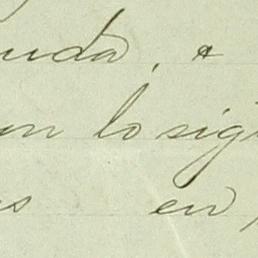 uda. a
un lo sig
s en